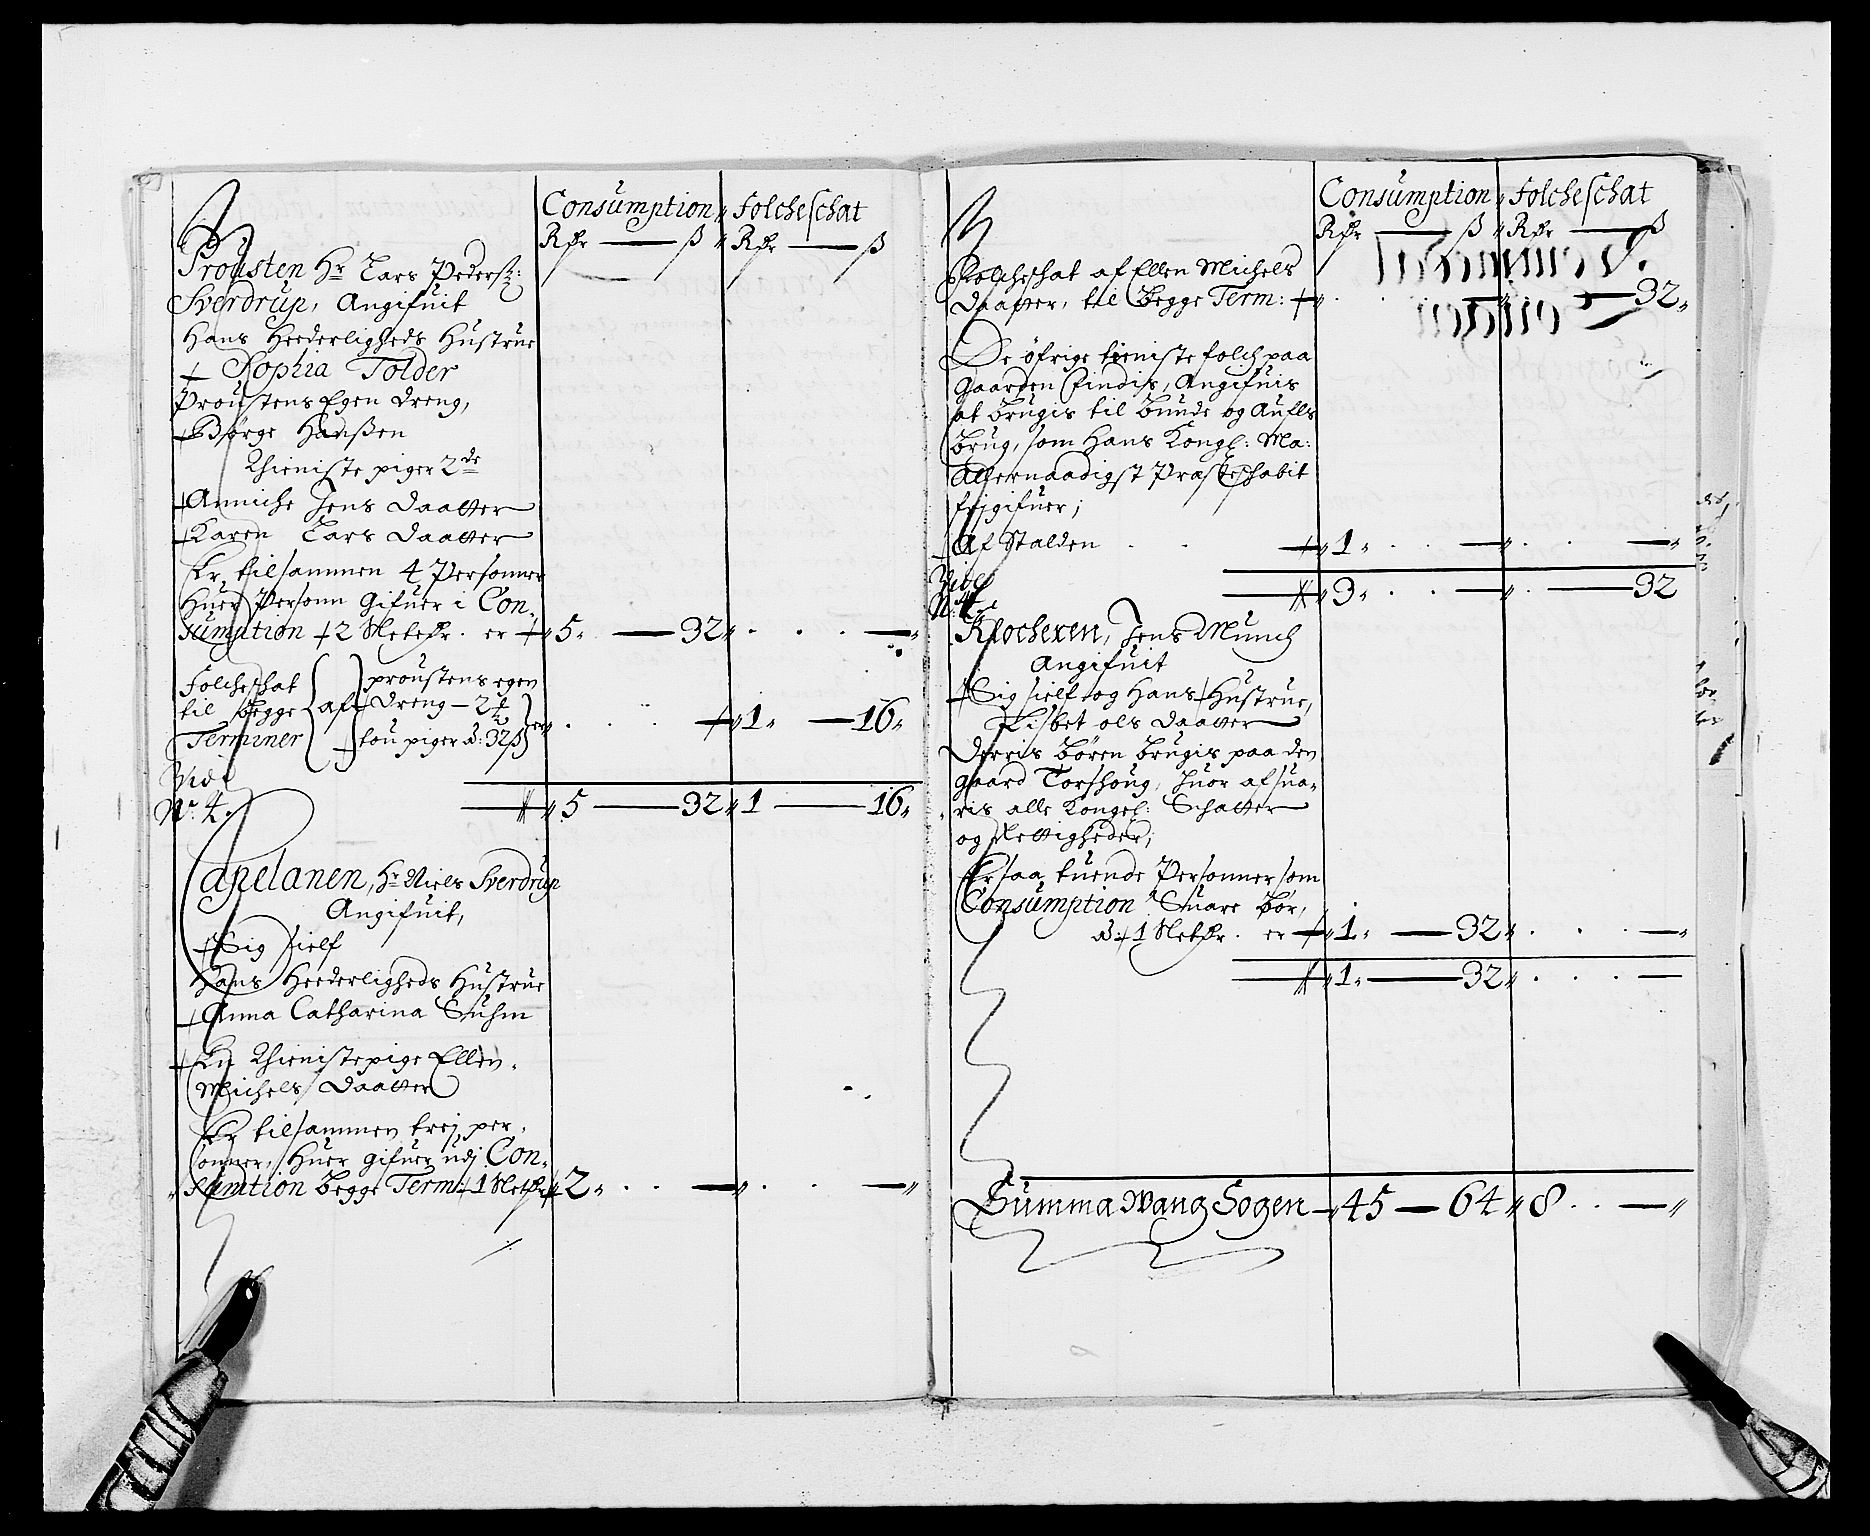 Consumption Folcheschat
Rdr ß Rdr ß
Prousten Hr Lars Pederß:
Sverdrup, Angifuit
Hans Heederligheds Hustrue
Sophia Tolder
Proustens Egen dreng,
Børge Hanßen
Thieniste piger 2de
Anniche Jens Daatter
Karen Lars Daatter
Er tilsammen 4 Personner
Huer Person Gifuer i Con-
sumption er 5 32
Folcheschat til Begge Terminer af
proustens egen
dreng
tou piger 1 16
Vidi
No: 4. 5 32 1 16
Capelanen, Hr Niels Sverdrup
Angifuit,
Sig sielf
Hans Heederligheds Hustrue
Anna Catharina Suhm
En Thieniste pige Ellen
Michels Daatter
Er tilsammen trej per-
sonner, Huer gifuer udj Con-
sumtion Begge Term: 2
Consumption Folcheschat
Rdr ß Rdr ß
Folcheschat af Ellen Michels
Daatter, til Begge Term: 32
De øfrige tieniste folch paa
Gaarden findis, Angifuis
at brugis til bunde og Aufls
brug, som Hans Kongl: Ma:
Allernaadigst
frigifuer;
Af Stalden 1
Vidi
3 32
Klocheren, Jens Munch
Angifuit
Sig sielf og Hans Hustrue,
Lisbet Ols Daatter
Derris Børen brugis paa den
gaard Torshoug, huor af sua-
ris alle Kongel: Schatter
og Rettigheder;
Er saa tuende Personner som
Consumption Suare bør,
er 1 32
1 32
Summa Wang Sogen 45 64 8